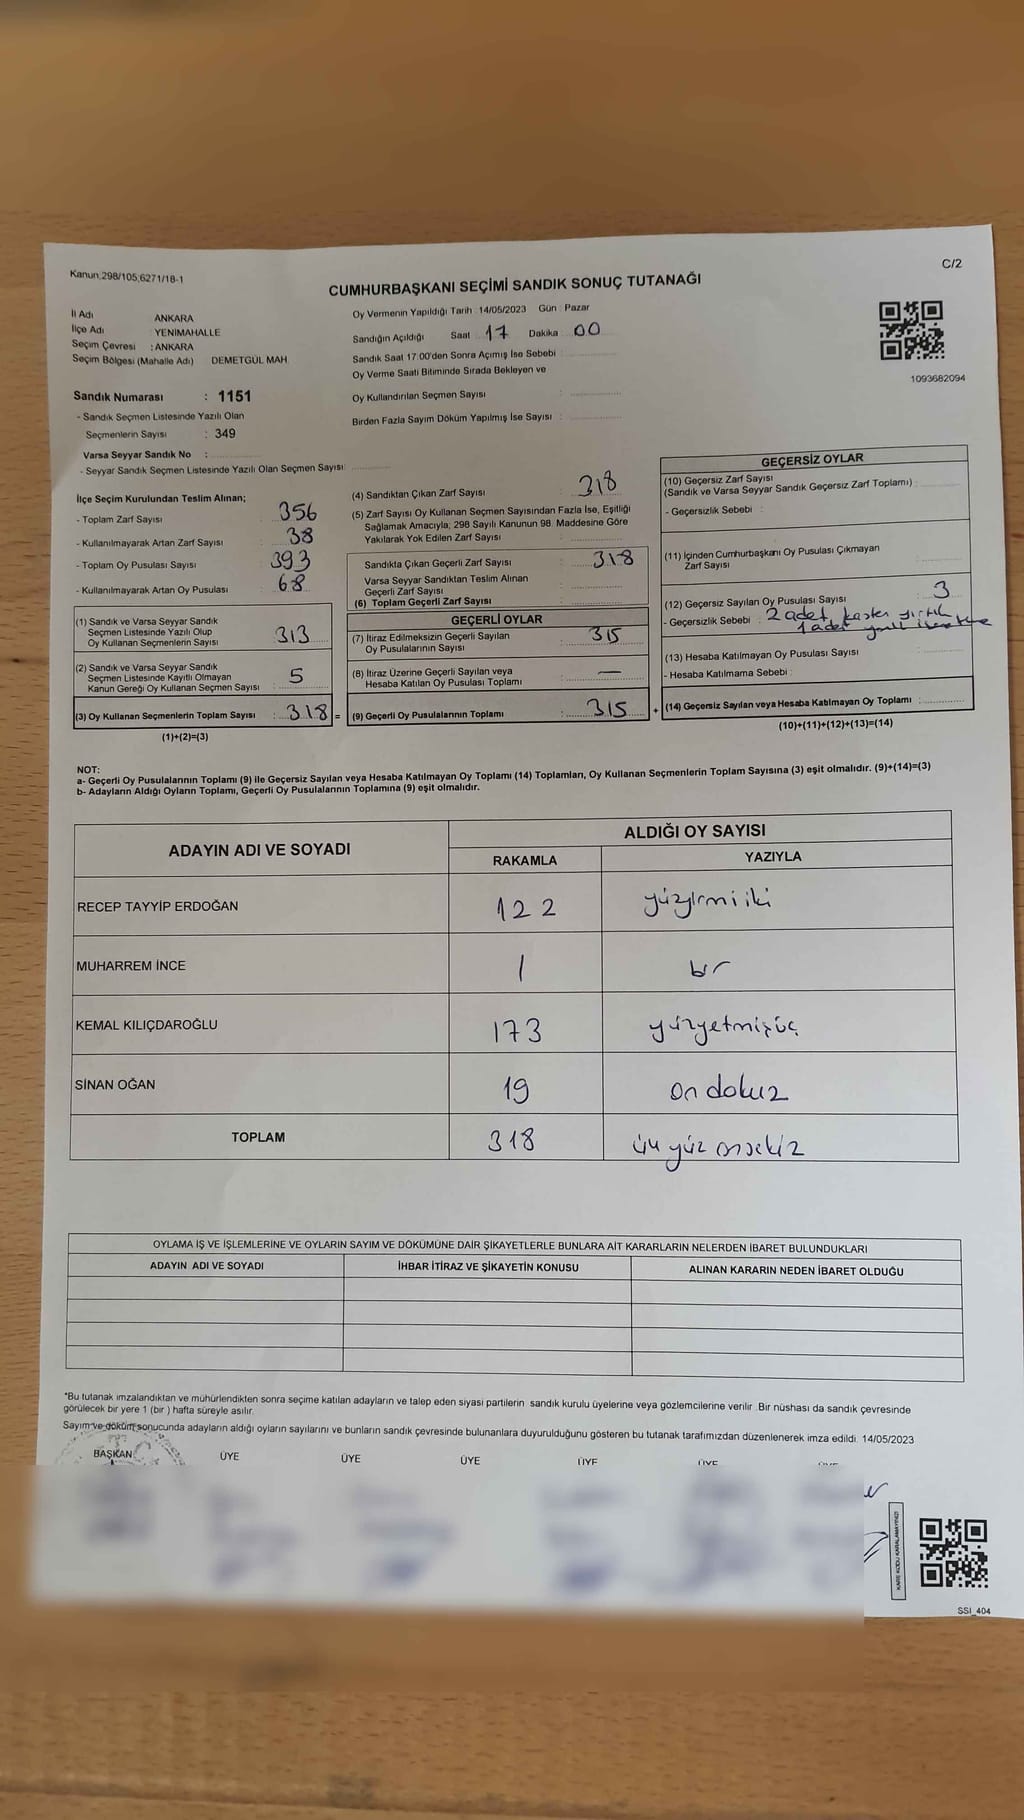 Kanun,298/105;6271/18-1
C/2
CUMHURBAŞKANI SEÇİMİ SANDIK SONUÇ TUTANAĞI
İl Adı ANKARA
İlçe Adı : YENİMAHALLE
Seçim Çevresi : ANKARA
Seçim Bölgesi (Mahalle Adı) DEMETGÜL MAH.
Sandık Numarası : 1151
- Sandık Seçmen Listesinde Yazılı Olan
Seçmenlerin Sayısı : 349
Varsa Seyyar Sandık No :
- Seyyar Sandık Seçmen Listesinde Yazılı Olan Seçmen Sayısı:
Oy Vermenin Yapıldığı Tarih : 14/05/2023 Gün : Pazar
Sandığın Açıldığı Saat : 17 Dakika : 00
Sandık Saat 17:00'den Sonra Açımış İse Sebebi :
Oy Verme Saati Bitiminde Sırada Bekleyen ve
Oy Kullandırılan Seçmen Sayısı :
Birden Fazla Sayım Döküm Yapılmış İse Sayısı :
1093682094
İlçe Seçim Kurulundan Teslim Alınan;
- Toplam Zarf Sayısı : 356
- Kullanılmayarak Artan Zarf Sayısı : 38
- Toplam Oy Pusulası Sayısı : 393
- Kullanılmayarak Artan Oy Pusulası : 68
(1) Sandık ve Varsa Seyyar Sandık
Seçmen Listesinde Yazılı Olup
Oy Kullanan Seçmenlerin Sayısı : 313
(2) Sandık ve Varsa Seyyar Sandık
Seçmen Listesinde Kayıtlı Olmayan
Kanun Gereği Oy Kullanan Seçmen Sayısı : 5
(3) Oy Kullanan Seçmenlerin Toplam Sayısı : 318 =
(1)+(2)=(3)
(4) Sandıktan Çıkan Zarf Sayısı : 318
(5) Zarf Sayısı Oy Kullanan Seçmen Sayısından Fazla İse, Eşitliği
Sağlamak Amacıyla; 298 Sayılı Kanunun 98. Maddesine Göre
Yakılarak Yok Edilen Zarf Sayısı :
Sandıkta Çıkan Geçerli Zarf Sayısı : 318
Varsa Seyyar Sandıktan Teslim Alınan
Geçerli Zarf Sayısı :
(6) Toplam Geçerli Zarf Sayısı :
GEÇERLİ OYLAR
(7) İtiraz Edilmeksizin Geçerli Sayılan
Oy Pusulalarının Sayısı : 315
(8) İtiraz Üzerine Geçerli Sayılan veya
Hesaba Katılan Oy Pusulası Toplamı : —
(9) Geçerli Oy Pusulalarının Toplamı : 315 +
GEÇERSİZ OYLAR
(10) Geçersiz Zarf Sayısı
(Sandık ve Varsa Seyyar Sandık Geçersiz Zarf Toplamı) :
- Geçersizlik Sebebi :
(11) İçinden Cumhurbaşkanı Oy Pusulası Çıkmayan
Zarf Sayısı :
(12) Geçersiz Sayılan Oy Pusulası Sayısı : 3
- Geçersizlik Sebebi : 2 adet kasten yırtık
1 adet
(13) Hesaba Katılmayan Oy Pusulası Sayısı :
- Hesaba Katılmama Sebebi :
(14) Geçersiz Sayılan veya Hesaba Katılmayan Oy Toplamı :
(10)+(11)+(12)+(13)=(14)
NOT:
a- Geçerli Oy Pusulalarının Toplamı (9) ile Geçersiz Sayılan veya Hesaba Katılmayan Oy Toplamı (14) Toplamları, Oy Kullanan Seçmenlerin Toplam Sayısına (3) eşit olmalıdır. (9)+(14)=(3)
b- Adayların Aldığı Oyların Toplamı, Geçerli Oy Pusulalarının Toplamına (9) eşit olmalıdır.
ADAYIN ADI VE SOYADI
ALDIĞI OY SAYISI
RAKAMLA YAZIYLA
RECEP TAYYİP ERDOĞAN 122 yüzyirmiiki
MUHARREM İNCE 1 bir
KEMAL KILIÇDAROĞLU 173 yüzyetmişüç
SİNAN OĞAN 19 on dokuz
TOPLAM 318 üçyüz onsekiz
OYLAMA İŞ VE İŞLEMLERİNE VE OYLARIN SAYIM VE DÖKÜMÜNE DAİR ŞİKAYETLERLE BUNLARA AİT KARARLARIN NELERDEN İBARET BULUNDUKLARI
ADAYIN ADI VE SOYADI İHBAR İTİRAZ VE ŞİKAYETİN KONUSU ALINAN KARARIN NEDEN İBARET OLDUĞU
*Bu tutanak imzalandıktan ve mühürlendikten sonra seçime katılan adayların ve talep eden siyasi partilerin sandık kurulu üyelerine veya gözlemcilerine verilir. Bir nüshası da sandık çevresinde
görülecek bir yere 1 (bir ) hafta süreyle asılır.
Sayım ve döküm sonucunda adayların aldığı oyların sayılarını ve bunların sandık çevresinde bulunanlara duyurulduğunu gösteren bu tutanak tarafımızdan düzenlenerek imza edildi. 14/05/2023
BAŞKAN ÜYE ÜYE ÜYE ÜYE ÜYE ÜYE
KARE KODU KARALAMAYINIZ!
SSI_404